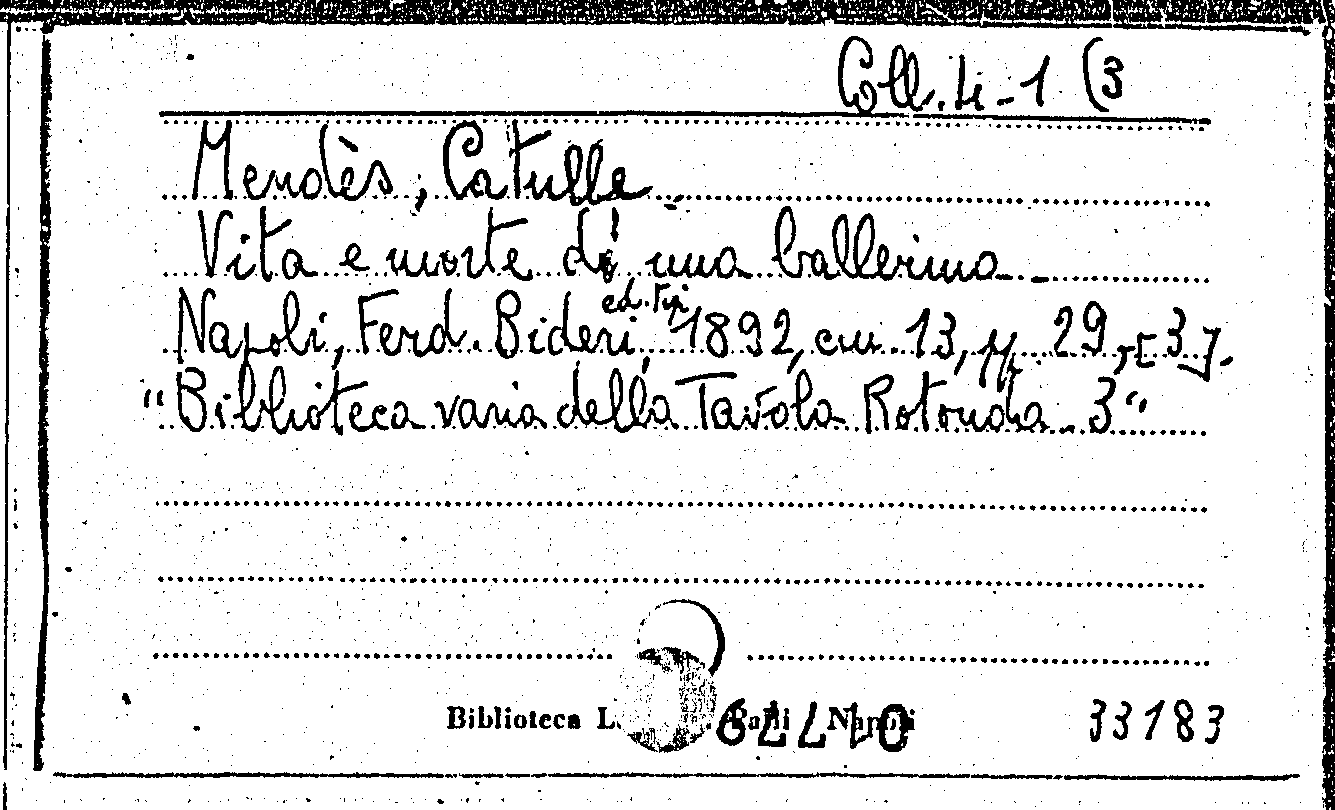 Coll. Li-1 (3
Mendès, Catulle.
Vita e morte di una ballerina -
Napoli, Ferd. Bideri, ed. tip. 1892, cm. 13, pp. 29,-[3].
"Biblioteca varia della Tavola Rotonda - 3"
Biblioteca L. Napoli 33183